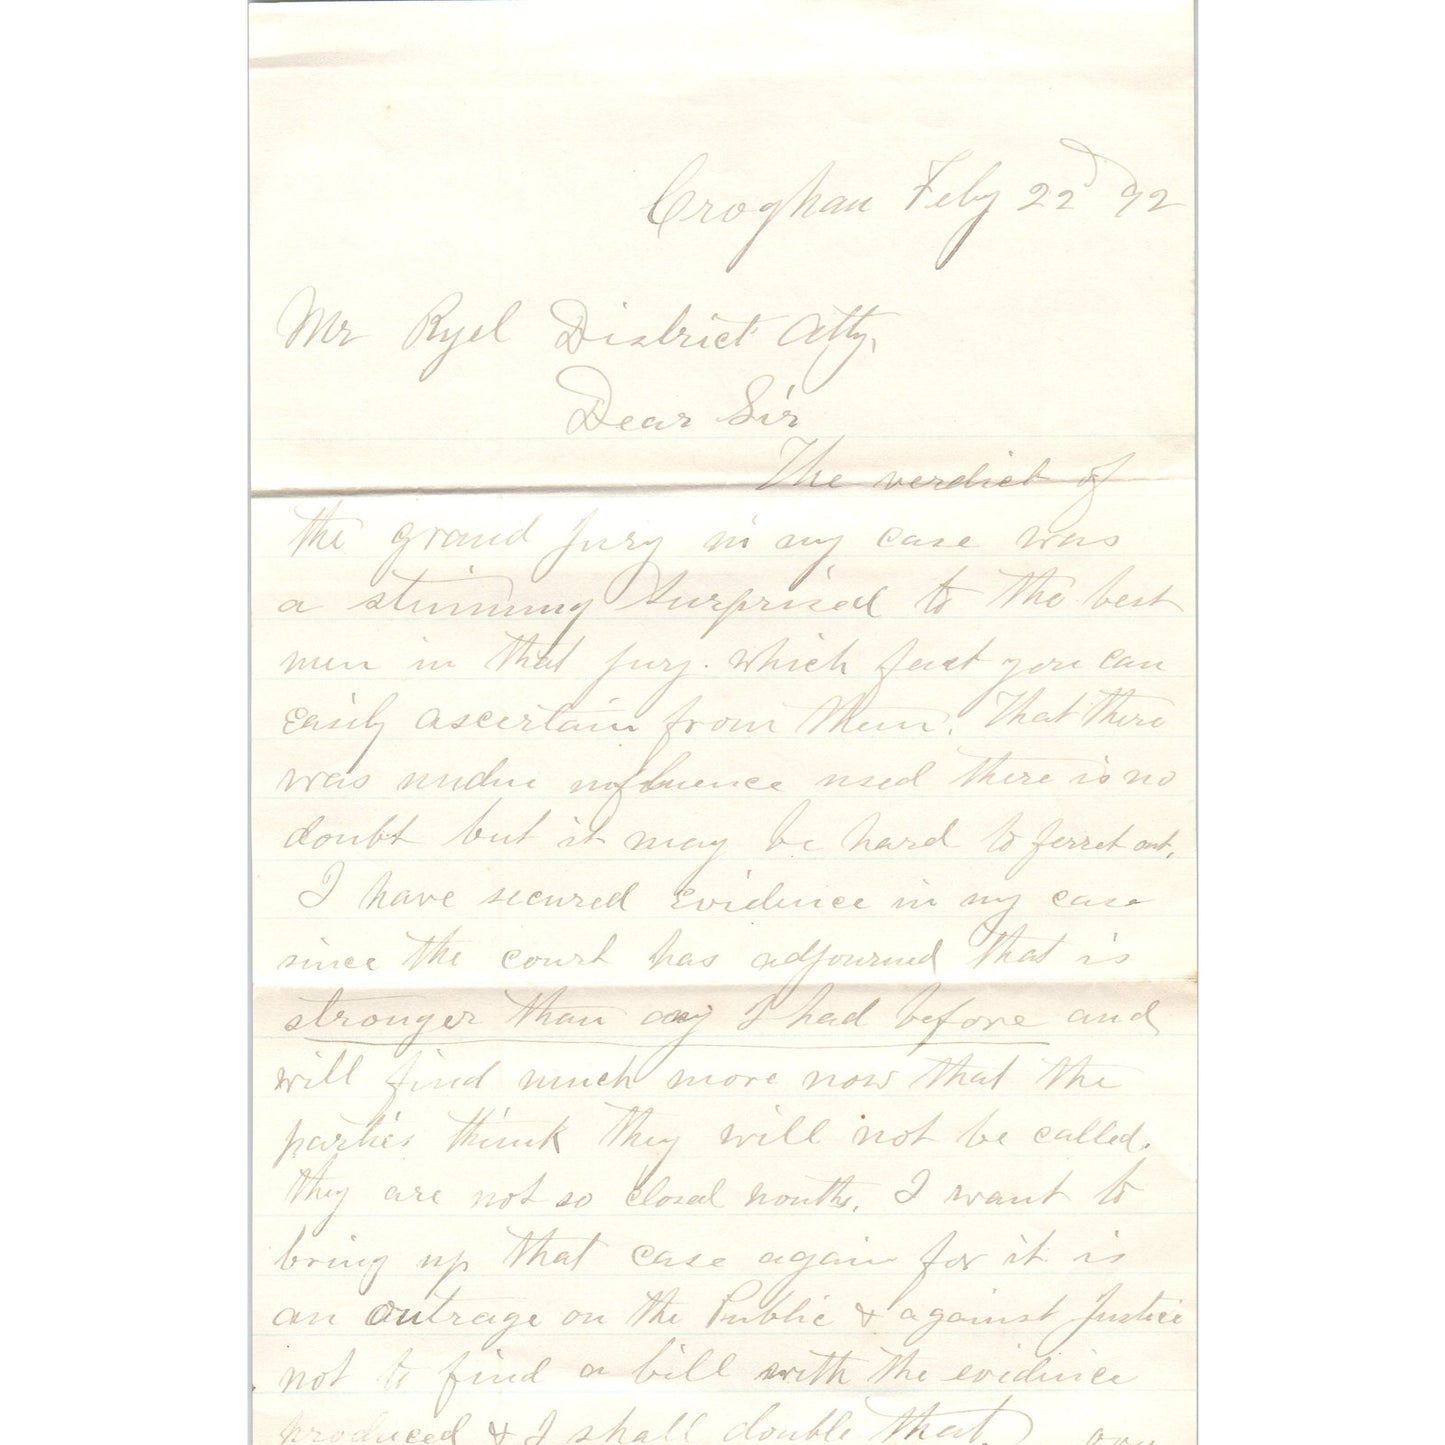 Croghan Feby 22d 92
Mr Ryel District Atty,
Dear Sir
The verdict of
the grand Jury in my case was
a stunning surprised to the best
men in that jury. which fact you can
easily ascertain from them. That there
was undue influence used there is no
doubt but it may be hard to ferret out,
I have secured evidence in my case
since the court has adjourned that is
stronger than any I had before and
will find much more now that the
parties think they will not be called.
they are not so closed mouths. I want to
bring up that case again for it is
an outrage on the Public & against Justice
not to find a bill with the evidence
produced & I shall double that.